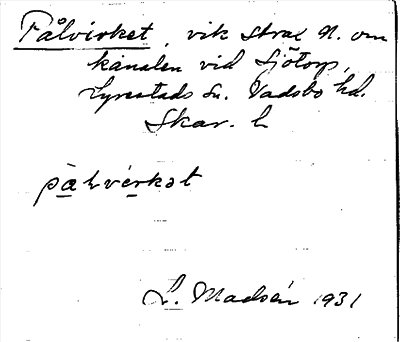 Pålvirket, vik strax N. om
kanalen vid Sjötorp,
Lyrestads sn. Vadsbo hd.
Skar. l.
pålvèrkət
L. Madsén 1931